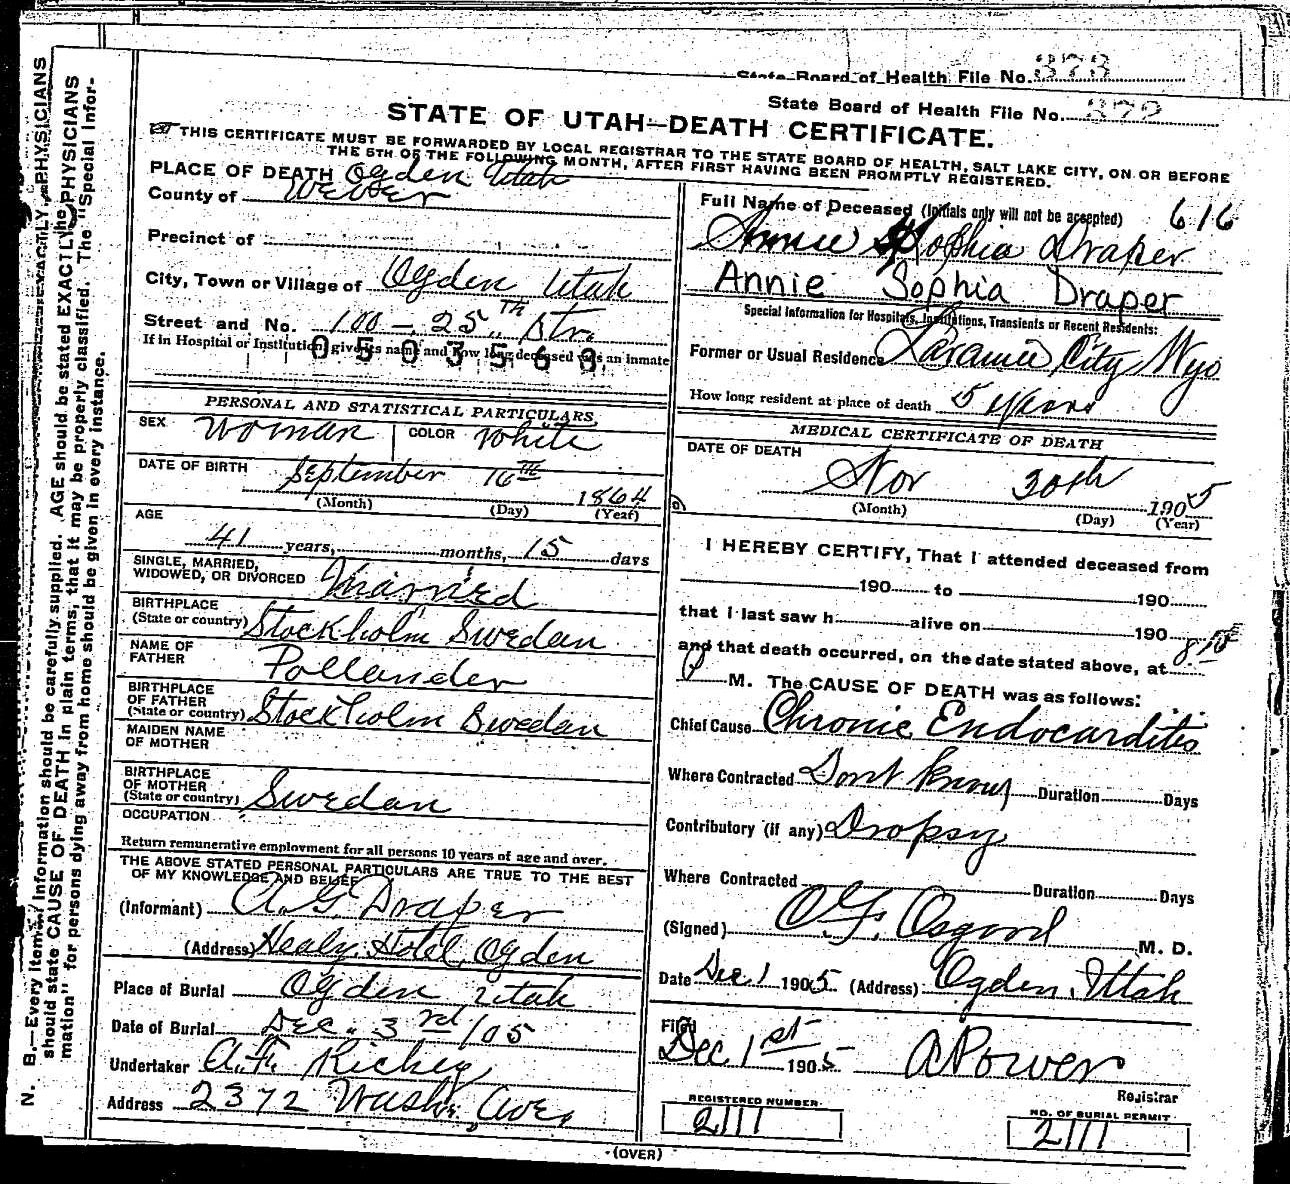 State Board of Health File No. 373
State Board of Health File No. 372
STATE OF UTAH—DEATH CERTIFICATE.
THIS CERTIFICATE MUST BE FORWARDED BY LOCAL REGISTRAR TO THE STATE BOARD OF HEALTH, SALT LAKE CITY, ON OR BEFORE
THE 5TH OF THE FOLLOWING MONTH, AFTER FIRST HAVING BEEN PROMPTLY REGISTERED.
N. B.—Every item of information should be carefully supplied. AGE should be stated EXACTLY. PHYSICIANS
should state CAUSE OF DEATH in plain terms, that it may be properly classified. The "Special Infor-
mation" for persons dying away from home should be given in every instance.
PLACE OF DEATH Ogden Utah
County of Weber
Precinct of
City, Town or Village of Ogden Utah
Street and No. 100 - 25TH Str.
If in Hospital or Institution, give its name and how long deceased was an inmate
0503563
PERSONAL AND STATISTICAL PARTICULARS
SEX Woman COLOR White
DATE OF BIRTH September 16TH 1864
(Month) (Day) (Year)
AGE 41 years, months, 15 days
SINGLE, MARRIED,
WIDOWED, OR DIVORCED Married
BIRTHPLACE
(State or country) Stockholm Swedan
NAME OF
FATHER Pollander
BIRTHPLACE
OF FATHER
(State or country) Stockholm Swedan
MAIDEN NAME
OF MOTHER
BIRTHPLACE
OF MOTHER
(State or country) Swedan
OCCUPATION
Return remunerative employment for all persons 10 years of age and over.
THE ABOVE STATED PERSONAL PARTICULARS ARE TRUE TO THE BEST
OF MY KNOWLEDGE AND BELIEF
(Informant) A.G. Draper
(Address) Healy Hotel Ogden
Place of Burial Ogden Utah
Date of Burial Dec. 3rd/05
Undertaker A.F. Richey
Address 2372 Wash. Ave,
Full Name of Deceased (Initials only will not be accepted) 616
Annie Sophia Draper
Annie Sophia Draper
Special Information for Hospitals, Institutions, Transients or Recent Residents:
Former or Usual Residence Laramie City Wyo
How long resident at place of death 5 years
MEDICAL CERTIFICATE OF DEATH
DATE OF DEATH
Nov 30th 1905
(Month) (Day) (Year)
I HEREBY CERTIFY, That I attended deceased from
190 to 190
that I last saw h alive on 190
and that death occurred, on the date stated above, at 8
P M. The CAUSE OF DEATH was as follows:
Chief Cause Chronic Endocarditis
Where Contracted Dont Know Duration Days
Contributory (if any) Dropsy
Where Contracted Duration Days
(Signed) O.G. Osgood M. D.
Date Dec 1 1905 (Address) Ogden, Utah
Filed
Dec 1st 1905 A Power
Registrar
REGISTERED NUMBER
2111
NO. OF BURIAL PERMIT
2111
(OVER)